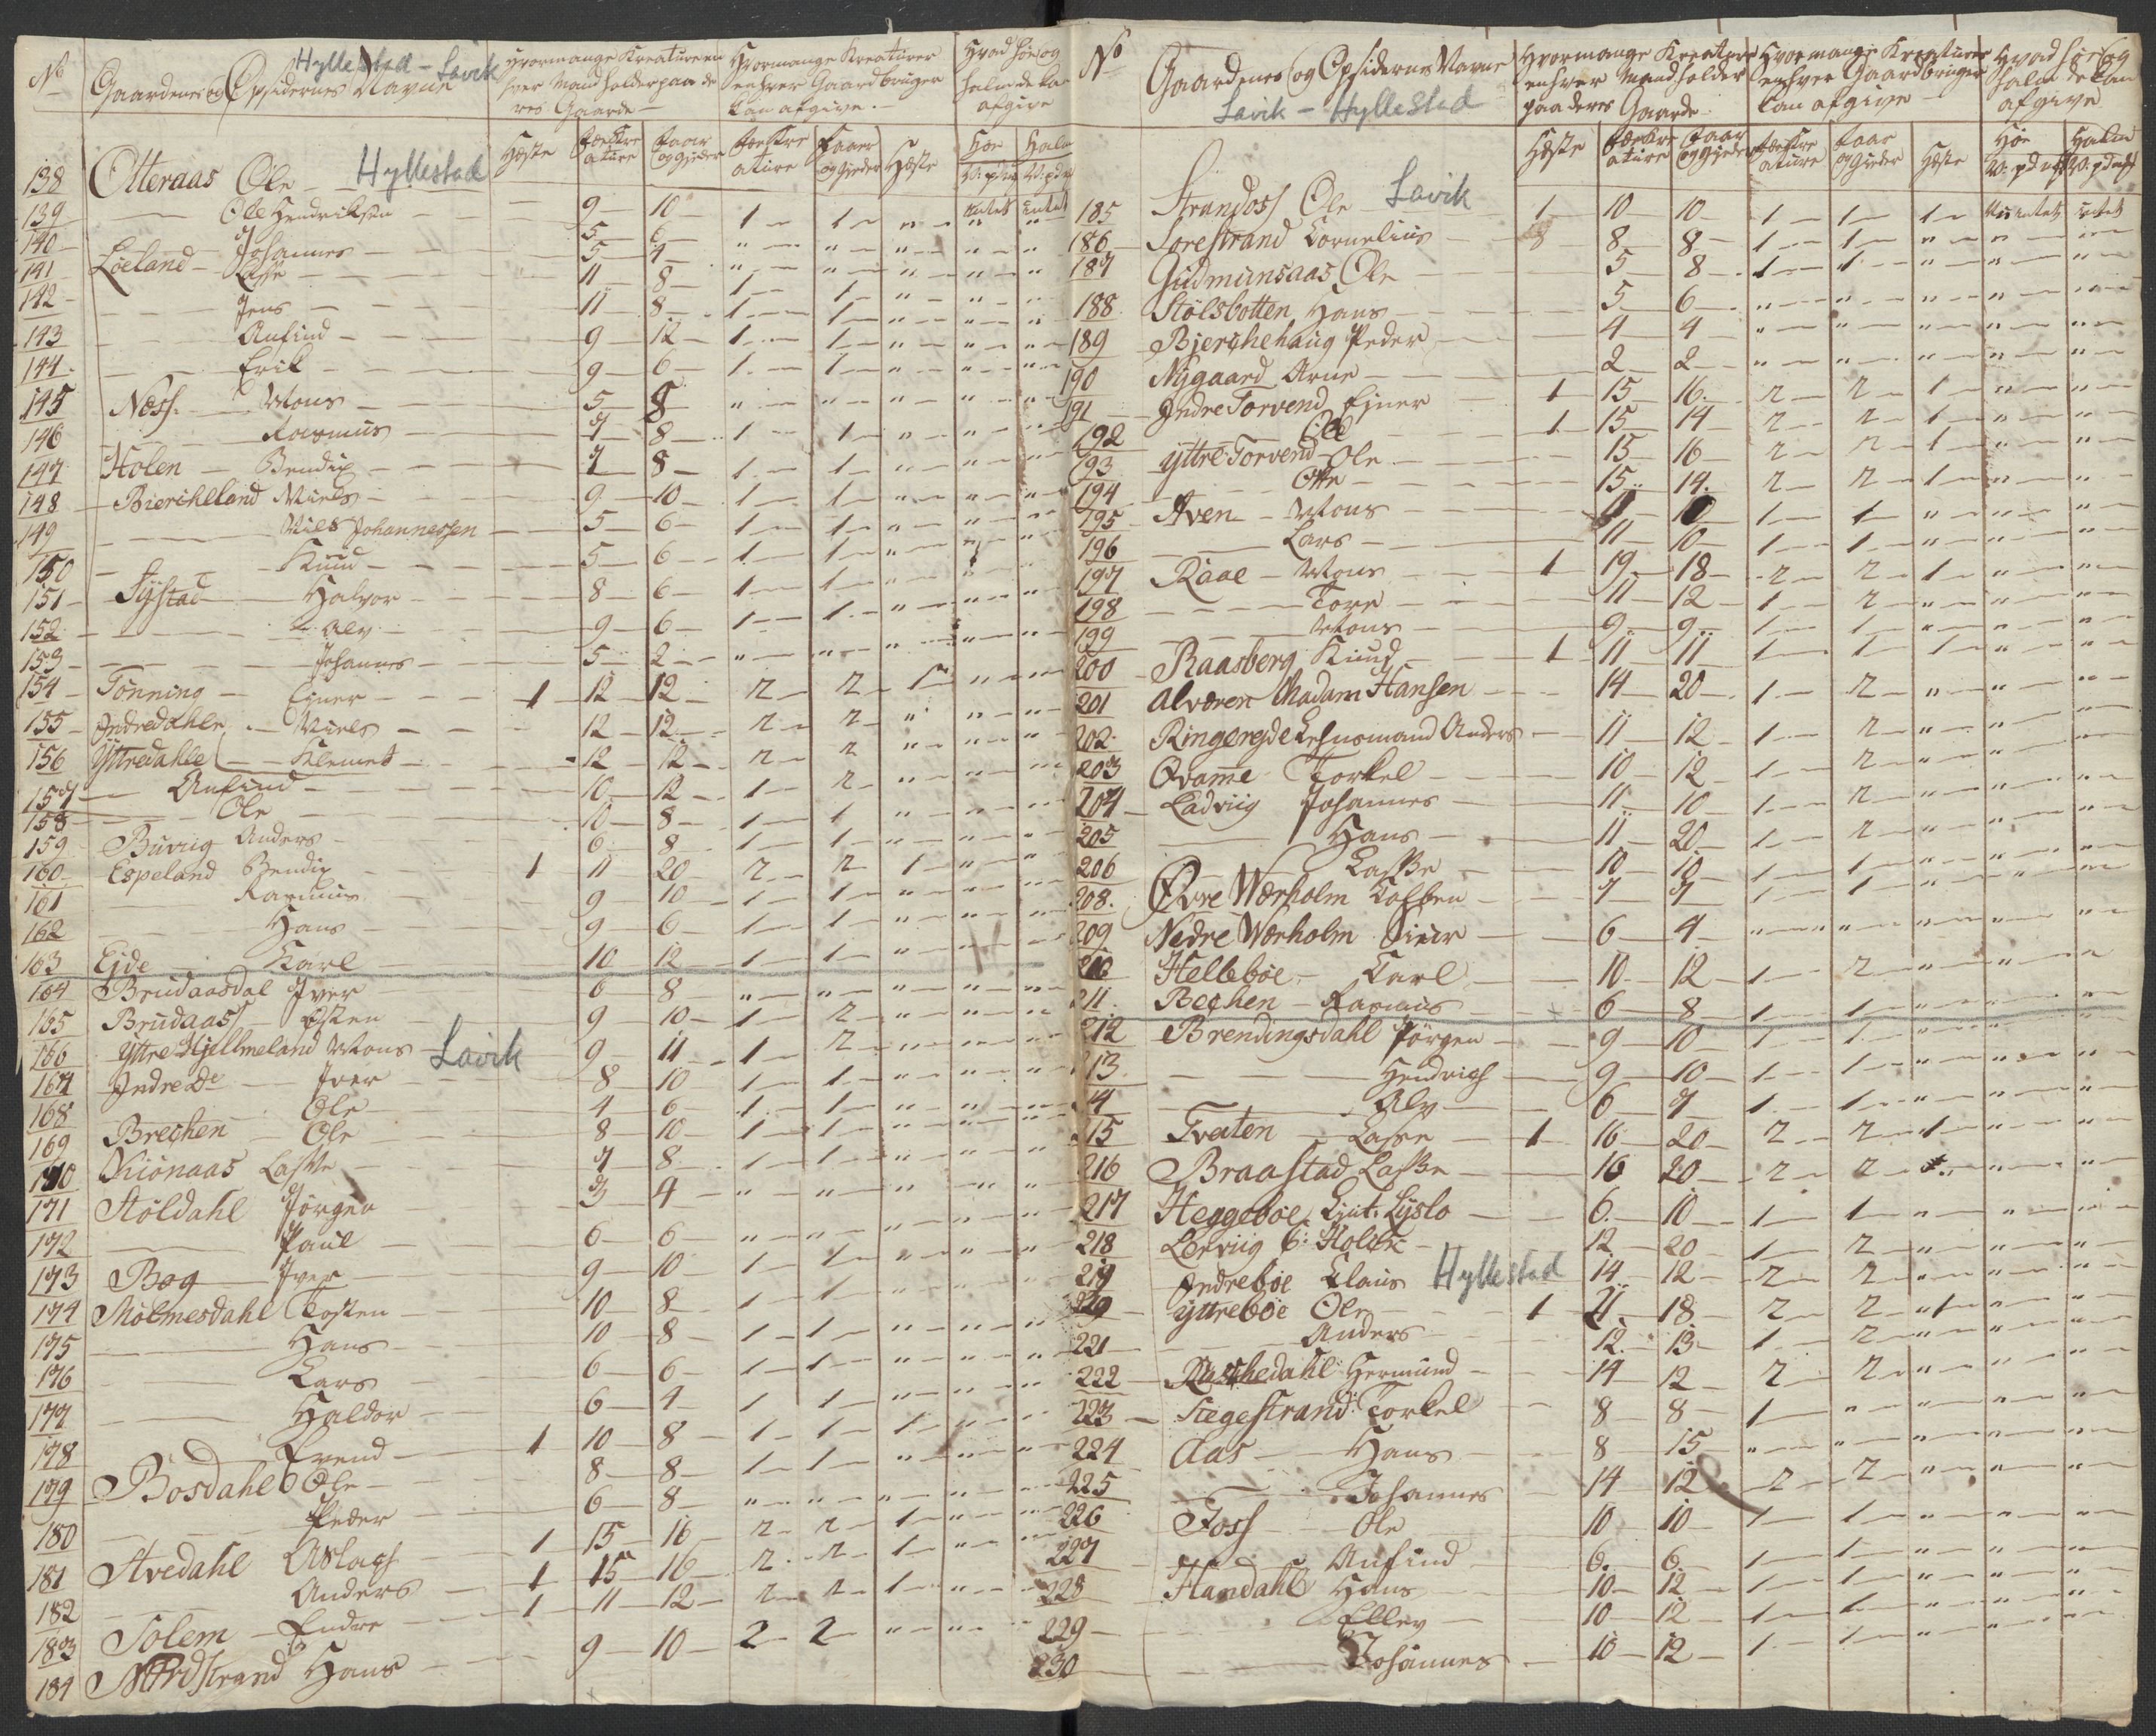 Hyllestad - Lavik
No Gaardenes og Opsidernes Navne
Hvormange Kreature en hver Mand holder paa de res Gaarde
Hvormange Kreaturer enhver Gaardbruger kan afgive.
Hvad Høe og Halm de kan afgive
Hæste Fæekre ature Faar og Gjeder Fæekre ature Faaer og Gjeder Hæste Høe Halm
138 Otteraas Ole Hyllestad 9 10 1 1 " intet intet
139 Ole Hendriksen 5 6 " " " " "
140 Løeland Johannes 5 4 " " " " "
141 Lasse 11 8 1 1 " " "
142 Jens 11 8 1 1 " " "
143 Anfind 9 12 1 1 " " "
144 Erik 9 6 1 1 " " "
145 Ness Mons 5 8 " " " " "
146 Rasmus 7 8 1 1 " " "
147 Holen Bendix 7 8 1 1 " " "
148 Biercheland Niels 9 10 1 1 " " "
149 Niels Johannessen 5 6 1 1 " " "
150 Knud 5 6 1 1 " " "
151 Systad Halvor 8 6 1 1 " " "
152 Alv 9 6 1 1 " " "
153 Johannes 5 2 " " " " "
154 Tønning Ejner 1 12 12 2 2 1 " "
155 Indredahle Niels 12 12 2 2 " " "
156 Yttredahle Klemet 12 12 2 2 " " "
157 Anfind 10 12 1 2 " " "
158 Ole 10 8 1 1 " " "
159 Buviig Anders 6 8 1 1 " " "
160 Espeland Bendix 1 11 20 2 2 1 " "
161 Rasmus 9 10 1 1 " " "
162 Hans 9 6 1 1 " " "
163 Ejde Karl 10 12 1 1 " " "
164 Brudaasdal Iver 6 8 " " " " "
165 Brudaass Østen 9 10 1 2 " " "
166 Yttre Hjellmeland Mons Lavik 9 11 1 2 " " "
167 Indre De Iver 8 10 1 1 " " "
168 Ole 4 6 1 1 " " "
169 Brechen Ole 8 10 1 1 " " "
170 Kiønaas Lasse 7 8 1 1 " " "
171 Støldahl Jørgen 3 4 " " " " "
172 Paul 6 6 " " " " "
173 Bog Iver 9 10 1 1 " " "
174 Mølmesdahl Tosten 10 8 1 1 " " "
175 Hans 10 8 1 1 " " "
176 Lars 6 6 1 1 " " "
177 Haldor 6 4 1 1 " " "
178 Erend 1 10 8 1 1 1 " "
179 Bosdahl Ole 8 8 1 1 " " "
180 Peder 6 8 " " " " "
181 Avedahl Aslach 1 15 16 2 2 1 " "
182 Anders 1 15 16 2 2 1 " "
183 Solem Endre 1 11 12 2 2 1 " "
184 Nordstrand Hans 9 10 2 2 " "
No Gaardenes og Opsidernes Navne
Lavik - Hyllestad
Hvormange Kreature enhver Mand holder paa deres Gaarde
Hvormange Kreaturer enhver Gaardbruger kan afgive
Hvad Høe og Halm de kan afgive
Hæste Fæekre ature Faar og Gjeder Fæekre ature Faar og Gjeder Hæste Høe Halm
185 Strandoss Ole Lavik 1 10 10 1 1 1 intet intet
186 Sørestrand Cornelius 8 8 1 1 " " "
187 Gudmunsaas Ole 5 8 1 1 " " "
188 Stølsbotten Hans 5 6 " " " " "
189 Bjerchehaug Peder 4 4 " " " " "
190 Nygaard Arne 2 2 " " " " "
191 Indre Torvend Ejner 1 15 16 2 2 1 " "
192 Ole 1 15 14 2 2 1 " "
193 Yttre Torvend Ole 15 16 2 2 1 " "
194 Otte 15 14 2 2 1 " "
195 Aven Mons 11 10 1 1 " " "
196 Lars 11 10 1 1 " " "
197 Raae Mons 1 19 18 2 2 1 " "
198 Tore 11 12 1 2 " " "
199 Mons 9 9 1 1 " " "
200 Raasberg Knud 1 11 11 1 1 1 " "
201 Alværen Madam Hansen 14 20 1 2 " " "
202 Ringereide Lehnsmand Anders 11 12 1 2 " " "
203 Qvamme Torkel 10 12 1 2 " " "
204 Ladviig Johannes 11 10 1 2 " " "
205 Hans 11 20 1 2 " " "
206 Lasse 10 10 1 1 " " "
208. Øvre Wærholm Kolben 7 7 1 1 " " "
209 Nedre Wærholm 6 4 " " " " "
210 Hellebøe Carl 10 12 1 2 " " "
211. Bechen Rasmus 6 8 1 1 " " "
212 Brendingsdahl Jørgen 9 10 1 1 " " "
213 Hendrich 9 10 1 1 " " "
14 Alv 6 7 1 1 " " "
215 Tveten Lasse 1 16 20 2 2 1 " "
216 Braastad Lasse 16 20 2 2 " " "
217 Heggebøe Lyslo 6 10 1 1 " " "
218 Lerviig 12 20 1 2 " " "
219 Indrebøe Claus Hyllestad 14 12 2 2 " " "
220 Yttrebøe Ole 1 21 18 2 2 1 " "
221 Anders 12 13 1 2 " " "
222 Raschedahl Hermund 14 12 2 2 " " "
223 Stegestrand Torkel 8 8 1 " " " "
224 Aas Hans 8 15 " " " " "
225 Johannes 14 12 2 2 " " "
226 Foss Ole 10 10 1 1 " " "
227 Anfind 6 6 1 1 " " "
228 Handahl Hans 10 12 1 1 " " "
229 Ellev 10 12 1 1 " " "
230 Johannes 10 12 1 1 " "